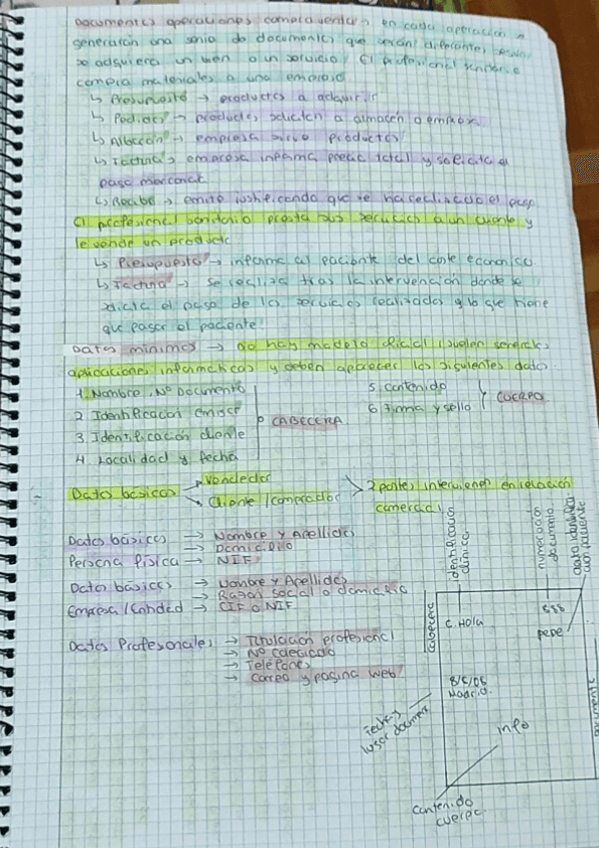 Documentos operaciones compraventa → en cada operación se
generarán una serie de documentos que serán diferentes según
se adquiera un bien o un servicio. El profesional sanitario
compra materiales a una empresa
↳ Presupuesto → productos a adquirir
↳ Pedidos → productos solicitan a almacén o empresa
↳ Albarán → empresa productos
↳ Factura → empresa informa precio total y solicita el
pago mercancía
↳ Recibo → emite justificando que se ha realizado el pago
El profesional sanitario presta sus servicios a un cliente y
le vende un producto
↳ Presupuesto → informa al paciente del coste económico
↳ Factura → se realiza tras la intervención donde se
el pago de los servicios realizados y lo que tiene
que pagar el paciente.
Datos mínimos → no hay modelo oficial (suelen
aplicaciones informáticas) y deben aparecer los siguientes datos
1. Nombre, Nº Documento
2. Identificación emisor
3. Identificación cliente
4. Localidad y fecha
CABECERA
5. Contenido
6. Firma y sello
CUERPO
Datos básicos → Vendedor
→ Cliente / comprador
2 partes intervienen en relación
comercial
Datos básicos → Nombre y Apellidos
→ Domicilio
Persona física → NIF
Datos básicos → Nombre y Apellidos
→ Razón social o domicilio
Empresa / Entidad → CIF o NIF
Datos Profesionales → Titulación profesional
→ Nº colegiado
→ Teléfono
→ Correo y página web
identificación
clínica
numeración
documento
cabecera
C. Hola
555
pepe
8/5/06
Madrid.
Fecha y
lugar
info
Contenido
cuerpo